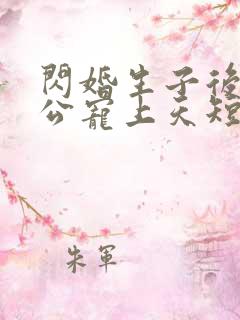 閃婚生子後
公寵上天短
朱軍